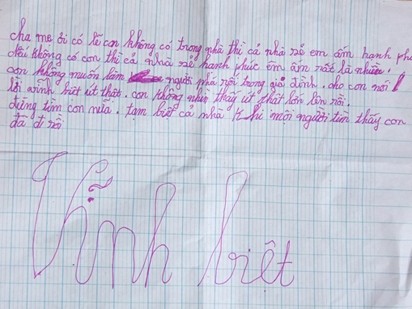 cha mẹ ơi có lẽ con không có trong nhà thì cả nhà sẽ em ấm hạnh ph
không có con thì cả nhà sẽ hạnh phúc êm ấm rất là nhiều.
con không muốn làm người phá rối trong gia đình. cho con nói
lời vĩnh biệt út thật. con không nhìn thấy út thật lớn lên rồi.
đừng tìm con nữa. tạm biệt cả nhà khi mỗi người tìm thấy con
đã đi rồi
Vĩnh biệt